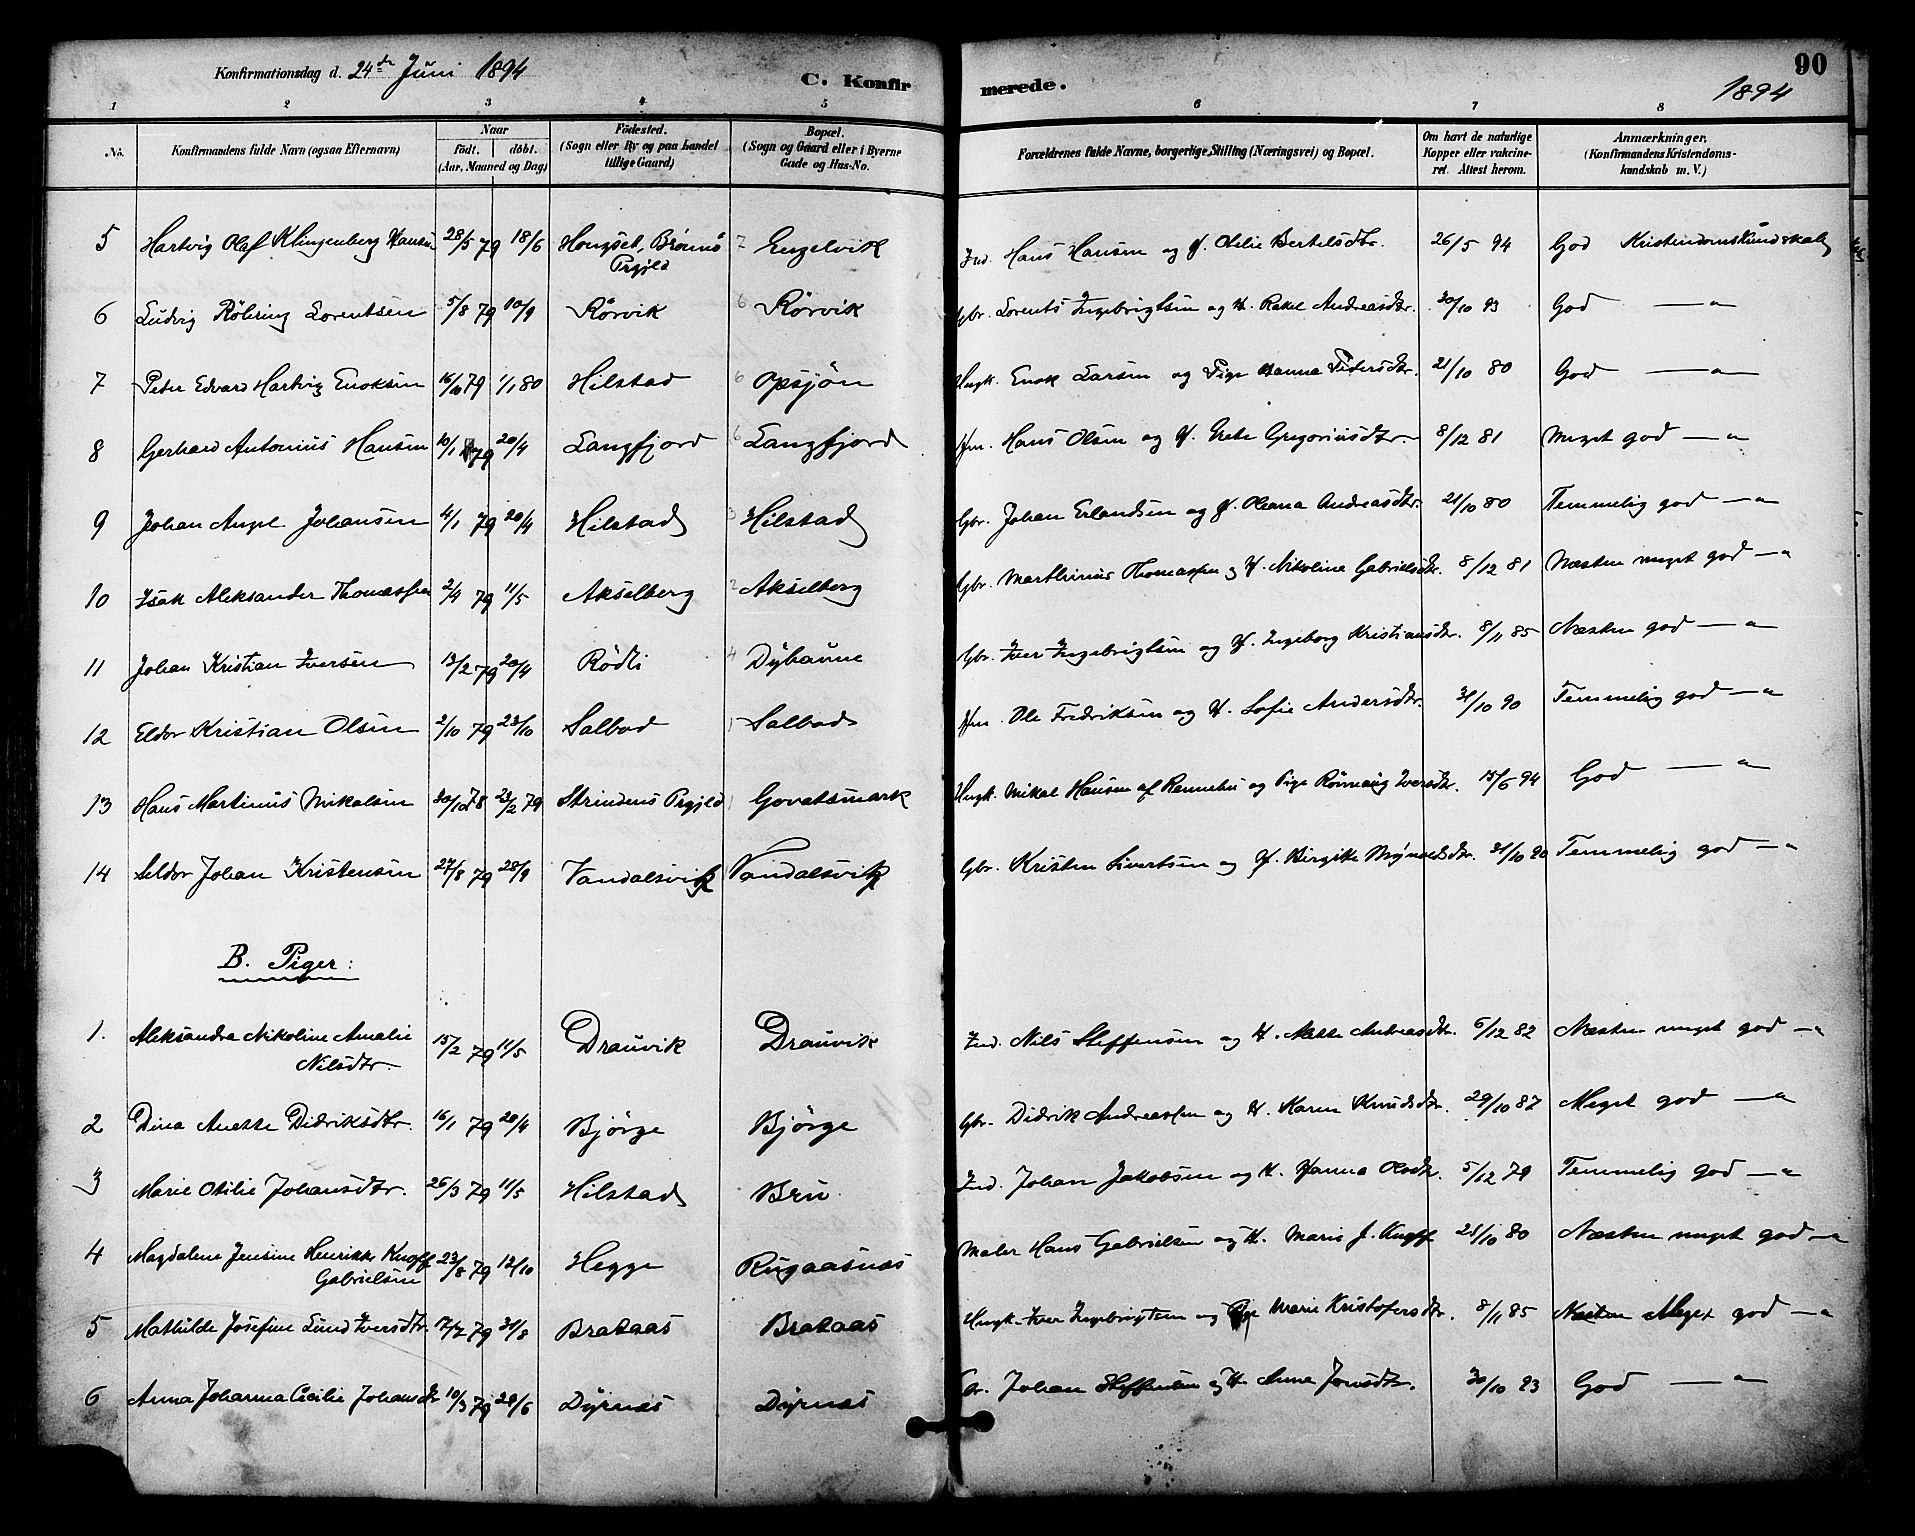 Konfirmationsdag d. 24de Juni 1894
C. Konfirmerede.
90
1894
1 2 3 4 5 6 7 8
No. Konfirmandens fulde Navn (ogsaa Efternavn) Naar Födt. döbt. (Aar, Maaned og Dag) Födested. (Sogn eller By og paa Landet tillige Gaard) Bopæl. (Sogn og Gaard eller i Byerne Gade og Hus-No. Forældrenes fulde Navne, borgerlige Stilling (Næringsvei) og Bopæl. Om havt de naturlige Kopper eller vakcineret. Attest herom. Anmærkninger. (Konfirmandens Kristendomskundskab m. V.)
5 Hartvig Olaf Klingenberg Hansen 28/5 79 18/6 Hongset, Brönnö Prgjld 7 Engelvik Ind. Hans Hansen og H. Olelie Bertelsdtr. 26/5 94 God Kristendomskundskab
6 Ludvig Röhring Lorentsen 5/8 79 10/9 Rörvik 6 Rörvik Gbr. Lorents Ingebrigtsen og H. Rakel Andreasdtr. 30/10 93 God —"—
7 Peter Edvard Hartvig Enoksen 16/10 79 1/1 80 Hilstad 6 Opsjön Ungk. Enok Larsen og Pige Hanna Pedersdtr. 21/10 80 God —"—
8 Gerhard Antonius Hansen 10/1 79 20/4 Langfjord 6 Langfjord Hm. Hans Olsen og H. Grete Gregoriusdtr. 8/12 81 Meget god —"—
9 Johan Angel Johansen 4/1 79 20/4 Hilstad 3 Hilstad Gbr. Johan Erlandsen og H. Oleana Andreasdtr. 21/10 80 Temmelig god —"—
10 Isak Aleksander Thomassen 2/4 79 11/5 Akselberg 2 Akselberg Gbr. Marthinus Thomassen og H. Nikoline Gabrielsdtr. 8/12 81 Næsten meget god —"—
11 Johan Kristian Iversen 13/2 79 20/4 Rödli 4 Dybaune Gbr. Iver Ingebrigtsen og H. Ingeborg Kristiansdtr. 8/11 85 Næsten god —"—
12 Eldor Kristian Olsen 2/10 79 23/10 Salbod 1 Salbod Hm. Ole Fredriksen og H. Sofie Andersdtr. 31/10 90 Temmelig god —"—
13 Hans Martinus Mikalsen 30/10 78 23/2 79 Strindens Prgjld 1 Govatsmark Ungk. Mikal Hansen af Rennebu og Pige Rönnaug Iversdtr. 15/6 94 God —"—
14 Seldor Johan Kristensen 27/8 79 28/9 Vandalsvik Vandalsvik Gbr. Kristen Sivertsen og H. Birgitte 31/10 90 Temmelig god —"—
B. Piger:
1. Aleksandra Nikoline Amalie Nilsdtr. 15/2 79 11/5 Drauvik Drauvik Ind. Nils Steffensen og H. Mette Andreasdtr. 6/12 82 Næsten meget god —"—
2 Dina Anette Didriksdtr. 16/1 79 20/4 Bjørge Bjørge Gbr. Didrik Andreassen og H. Karen Knudsdtr. 29/10 87 Meget god —"—
3 Marie Otilie Johansdtr. 26/3 79 11/5 Hilstad Bru Ind. Johan Jakobsen og H. Hanna Olsdtr. 5/12 79 Temmelig god —"—
4 Magdalene Jensine Henrikke Knoff Gabrielsen 23/8 79 12/10 Hegge Rugaasnæs Maler Hans Gabrielsen og H. Marie J. Knoff 21/10 80 Næsten meget god —"—
5 Mathilde Josefine Lund Iversdtr. 17/7 79 31/8 Brataas Brataas Ungk. Iver Ingebrigtsen og Pige Marie Kristofersdtr. 8/11 85 Næsten Meget god —"—
6 Anna Johanna Cecilie Johansdtr 10/3 79 29/6 Dyrnæs Dyrnæs Gbr. Johan Steffensen og H. Anna Jonsdtr. 30/10 93 God —"—